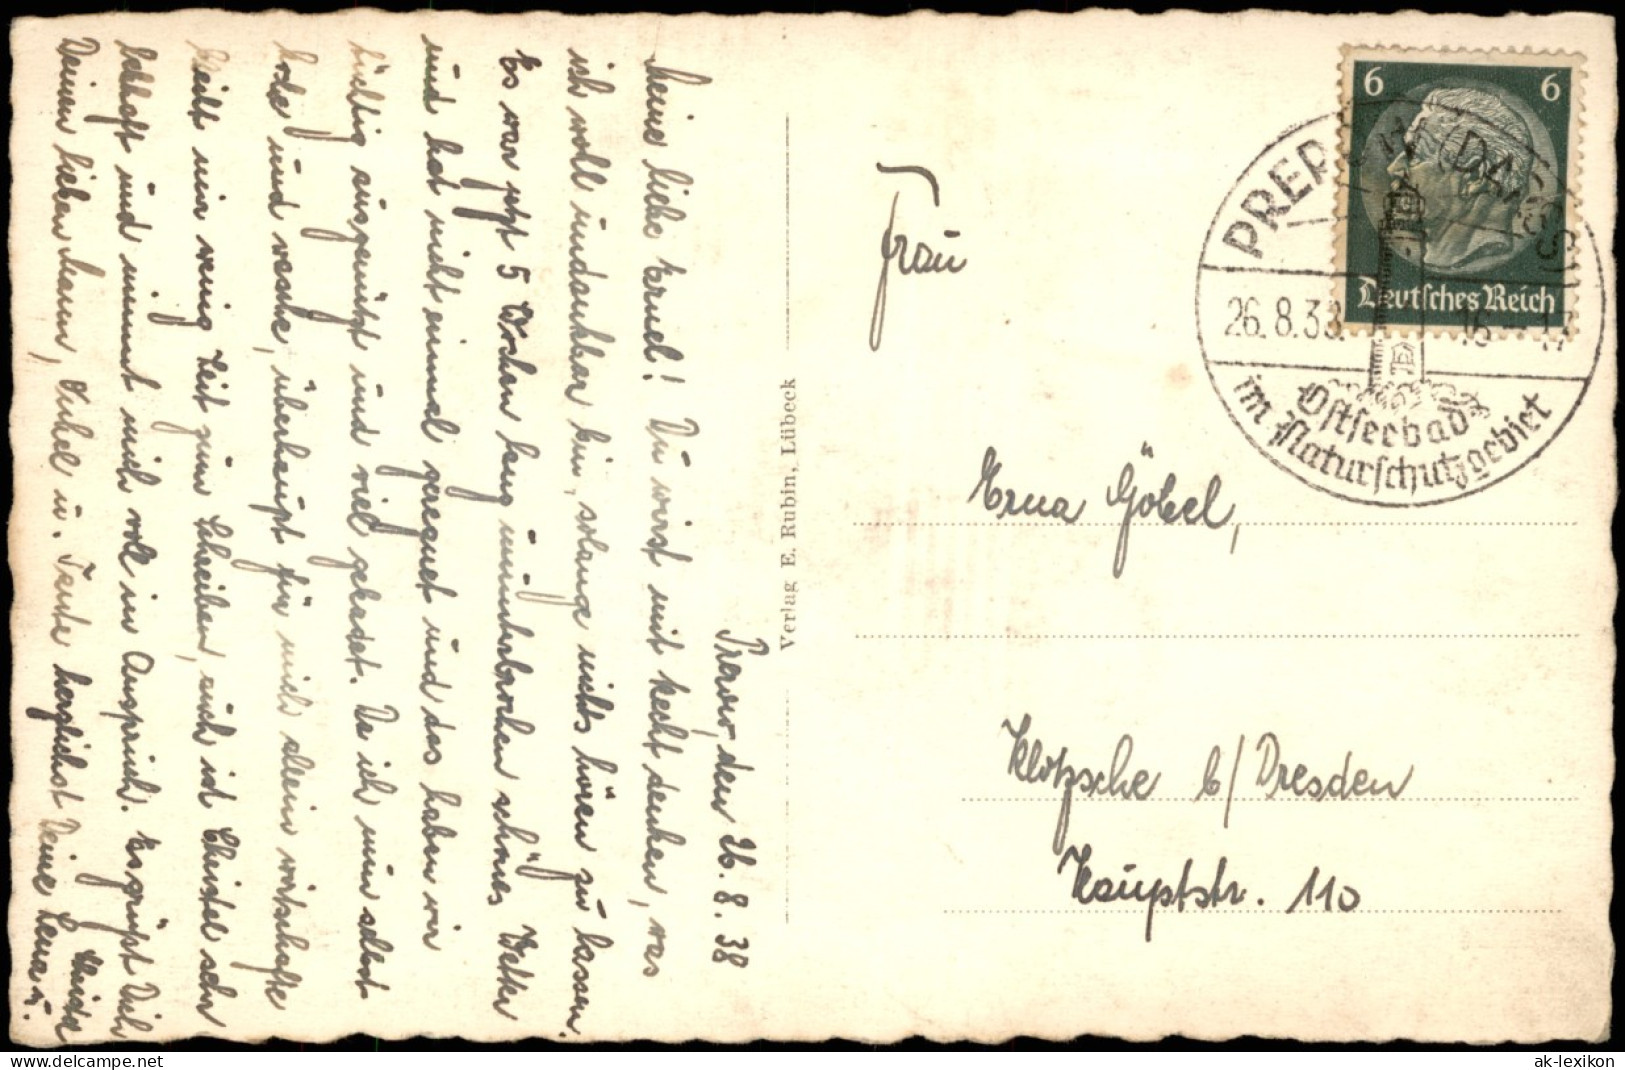 Prerow, den 26.8.38
Meine liebe Erna! Du wirst mit Recht denken, was
ich wohl undankbar bin, solange nichts hören zu lassen.
Es war jetzt 5 Wochen lang ununterbrochen schönes Wetter
und hat nicht einmal geregnet und das haben wir
tüchtig ausgenützt und viel gebadet. Da ich nun selbst
koche und wasche, überhaupt für mich allein wirtschafte
bleibt mir wenig Zeit zum Schreiben, auch ist Christel sehr
lebhaft und nimmt mich voll in Anspruch. Es grüßt Dich
Deinen lieben Mann, Onkel u. Tante herzlichst Deine Lena u.
Verlag E. Rubin, Lübeck
Frau
Erna Göbel,
Klotzsche b/Dresden
Hauptstr. 110
6 6
Deutsches Reich
PREROW (DARSS)
26.8.38. 16-17
Ostseebad
im Naturschutzgebiet
© delcampe.net
ak-lexikon